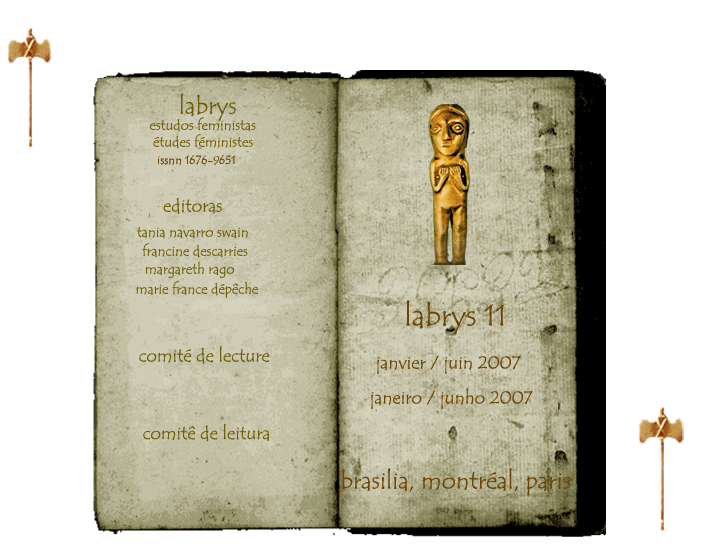 labrys
estudos feministas
études féministes
issnn 1676-9651
editoras
tania navarro swain
francine descarries
margareth rago
marie france dépêche
comité de lecture
comitê de leitura
labrys 11
janvier / juin 2007
janeiro / junho 2007
brasilia, montréal, paris